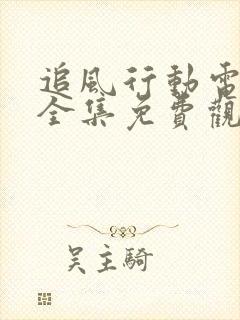 追風行動電
全集免費觀
吳主騎